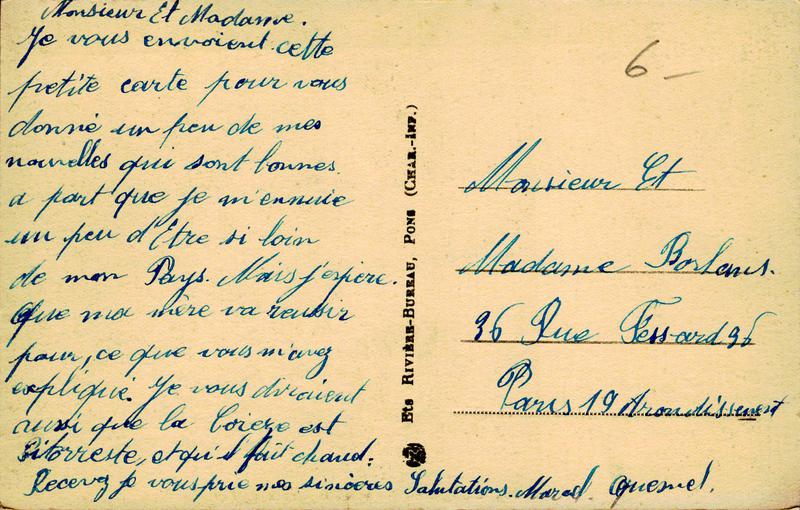 Monsieur Et Madame.
Je vous envoient cette
petite carte pour vous
donné un peu de mes
nouvelles qui sont bonnes
a part que je m'ennuie
un peu d'Etre si loin
de mon Pays. Mais j'espère.
Que ma mère va reussir
pour, ce que vous m'avez
expliqué. Je vous diraient
aussi que la est
Pitorreste, et qu'il fait chaud.
Recevez je vous prie mes sincères Salutations. Marcel Quesnel.
Ets RIVIÈRE-BUREAU, PONS (CHAR.-INF.)
6-
Monsieur Et
Madame
36 Rue Fessard 36
Paris 19 Arondissement